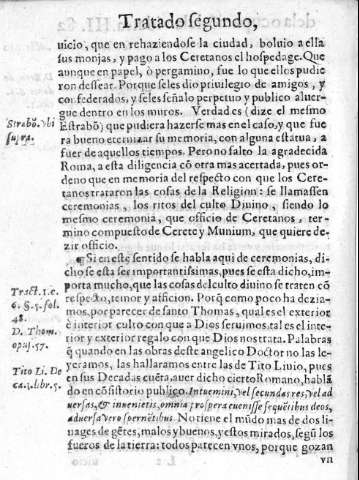 Tratado segundo,
uicio, que en rehaziendose la ciudad, boluio a ella
sus monjas, y pago a los Ceretanos el hospedage. Que
aunque en papel, ò pergamino, fue lo que ellos pudie
ron dessear. Porque seles dio priuilegio de amigos, y
cõfederados, y seles señalo perpetuo y publico aluer-
gue dentro en los muros. Verdad es (dize el mesmo
Estrabõ) que pudiera hazerse mas en el caso, y que fue
ra bueno eternizar su memoria, con alguna estatua, a
fuer de aquellos tiempos. Pero no salto la agradecida
Roma, a esta diligencia cõ otra mas acertada, pues or-
deno que en memoria del respecto con que los Cere-
tanos trataron las cosas de la Religion: se llamassen
ceremonias, los ritos del culto Diuino, siendo lo
mesmo ceremonia, que officio de Ceretanos, ter-
mino compuesto de Cerete y Munium, que quiere de-
zir officio.
¶ Si en este sentido se habla aqui de ceremonias, di-
cho se esta ser importantissimas, pues se esta dicho, im
porta mucho, que las cosas del culto diuino se traten cõ
respecto, temor y aficion. Porq̃ como poco ha dezia-
mos, por parecer de santo Thomas, qual es el exterior
è interior culto con que a Dios seruimos, tal es el inte-
rior y exterior regalo con que Dios nos trata. Palabras
q̃ quando en las obras deste angelico Doctor no las le-
yeramos, las hallaramos entre las de Tito Liuio, pues
en sus Decadas cuẽta, auer dicho cierto Romano, hablã
do en cõsistorio publico. Intuemini, vel secundas res, vel ad
uersas, & inuenietis, omnia prospera euenisse sequẽtibus deos,
aduersa vero spernẽtibus. No tiene el mũdo mas de dos li-
nages de gẽtes, malos y buenos, y estos mirados, segũ los
fueros de la tierra: todos parecen vnos, porque gozan
vn
Strabõ. Vbi
supra.
Tract. 1. c.
6. §. 5. fol.
48.
D. Thom.
opus. 57.
Tito Li. De
ca. 5. libr. 5.